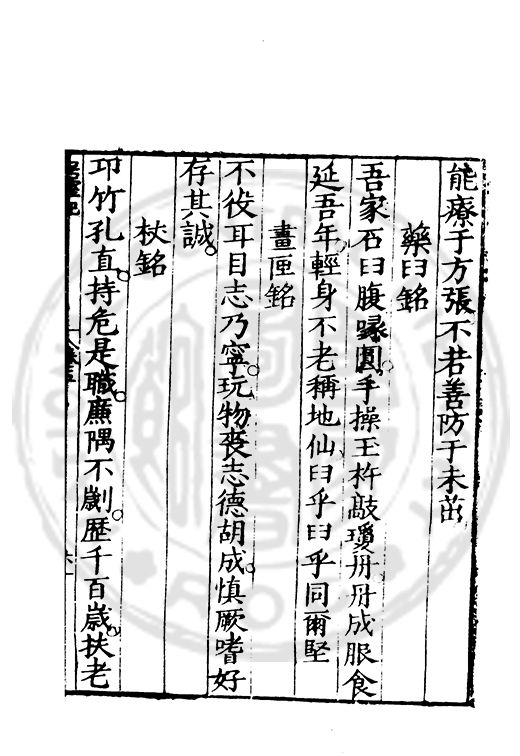 能療于方張不若善防于未茁
藥臼銘
吾家石臼腹緣圓手操玉杵敲瓊丹丹成服食
延吾年輕身不老稱地仙臼乎臼乎同爾堅
畫匣銘
不役耳目志乃寧玩物喪志德胡成慎厥嗜好
存其誠
杖銘
卭竹孔直持危是職廉隅不劌歷千百歲扶老